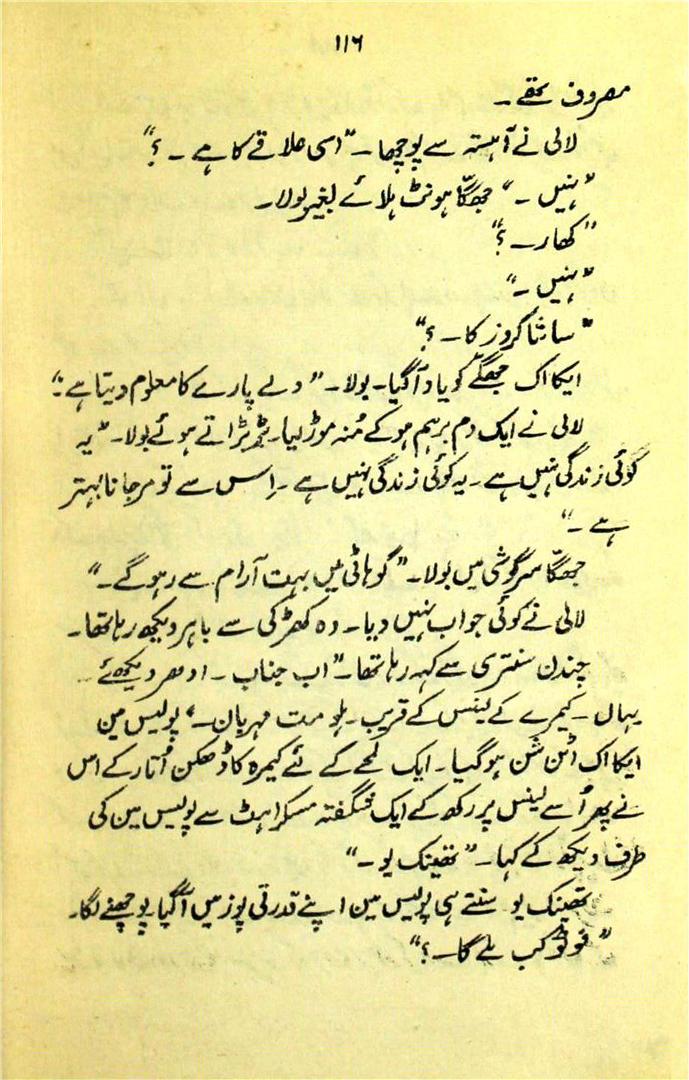 ۱۱۶
مصروف تھے۔
لالی نے آہستہ سے پوچھا۔ "اسی علاقے کا ہے۔؟"
"نہیں۔" جھگّا ہونٹ ہلائے بغیر بولا۔
"کھار۔؟"
"نہیں۔"
"سانتا کروز کا۔؟"
ایکا اک جھگّے کو یاد آگیا۔ بولا۔ "ولے پارے کا معلوم دیتا ہے۔"
لالی نے ایک دم برہم ہو کے مُنہ موڑ لیا۔ بڑبڑاتے ہوئے بولا۔ "یہ
کوئی زندگی نہیں ہے۔ یہ کوئی زندگی نہیں ہے۔ اِس سے تو مر جانا بہتر
ہے۔"
جھگّا سرگوشی میں بولا۔ "گوہاٹی میں بہت آرام سے رہو گے۔"
لالی نے کوئی جواب نہیں دیا۔ وہ کھڑکی سے باہر دیکھ رہا تھا۔
چندن سنتری سے کہہ رہا تھا۔ "اب جناب۔ ادھر دیکھئے۔
یہاں۔ کیمرے کے لینس کے قریب۔ ہلو مت مہربان۔" پولیس مین
ایکا اک اٹن شن ہو گیا۔ ایک لمحے کے لئے کیمرہ کا ڈھکن اُتار کے اس
نے پھر اُسے لینس پر رکھ کے ایک شگفتہ مسکراہٹ سے پولیس مین کی
طرف دیکھ کے کہا۔ "تھینک یو۔"
تھینک یو سنتے ہی پولیس مین اپنے قدرتی پوز میں آگیا پوچھنے لگا۔
"فوٹو کب ملے گا۔؟"